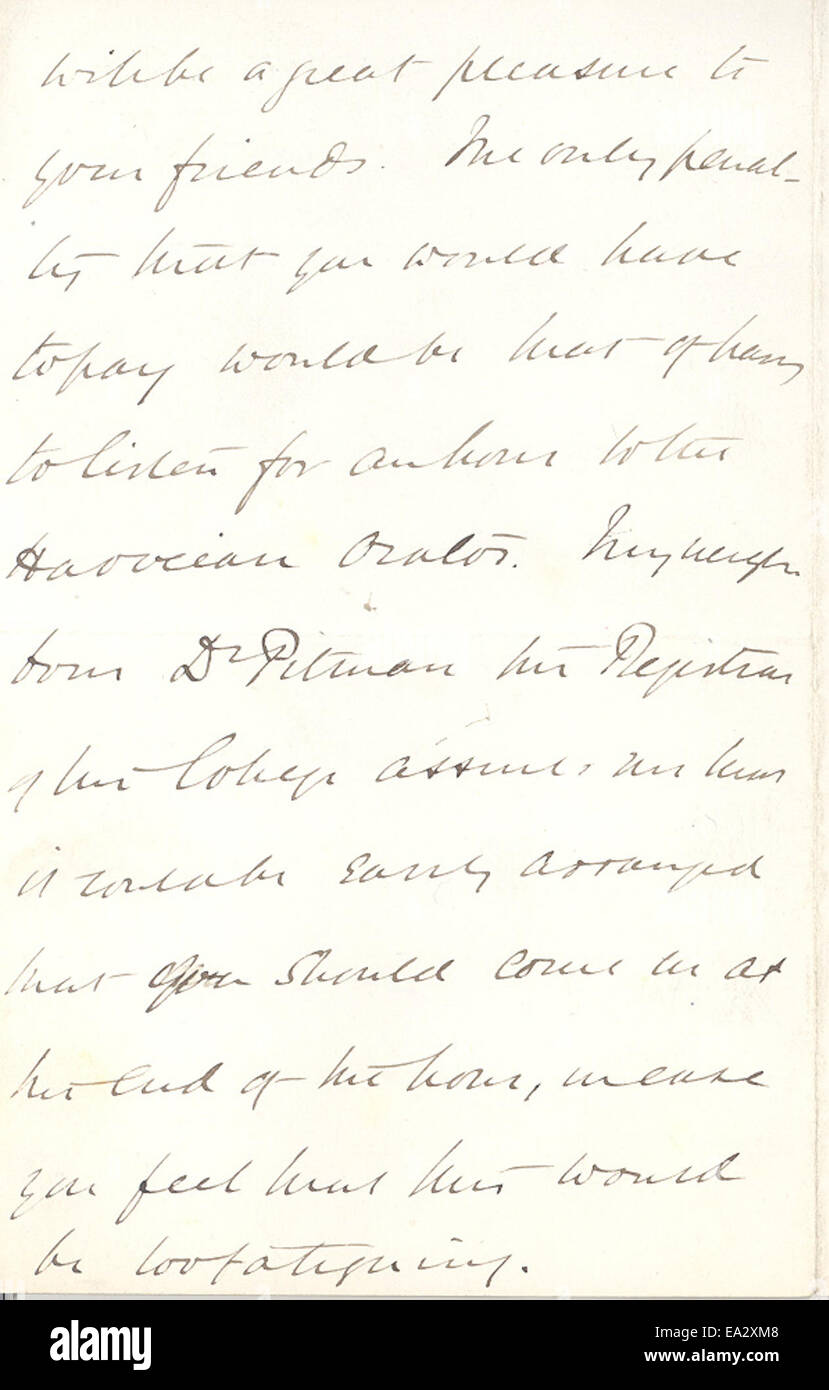 will be a great pleasure to
your friends. The only penal-
ty that you would have
to pay would be that of having
to listen for an hour to the
Harveian Orator. My neigh-
bour Dr Pitman the Registrar
of the College assures me that
it could be easily arranged
that you should come in at
the end of the hour, in case
you feel that this would
be too fatiguing.
alamy
Image ID: EA2XM8
www.alamy.com